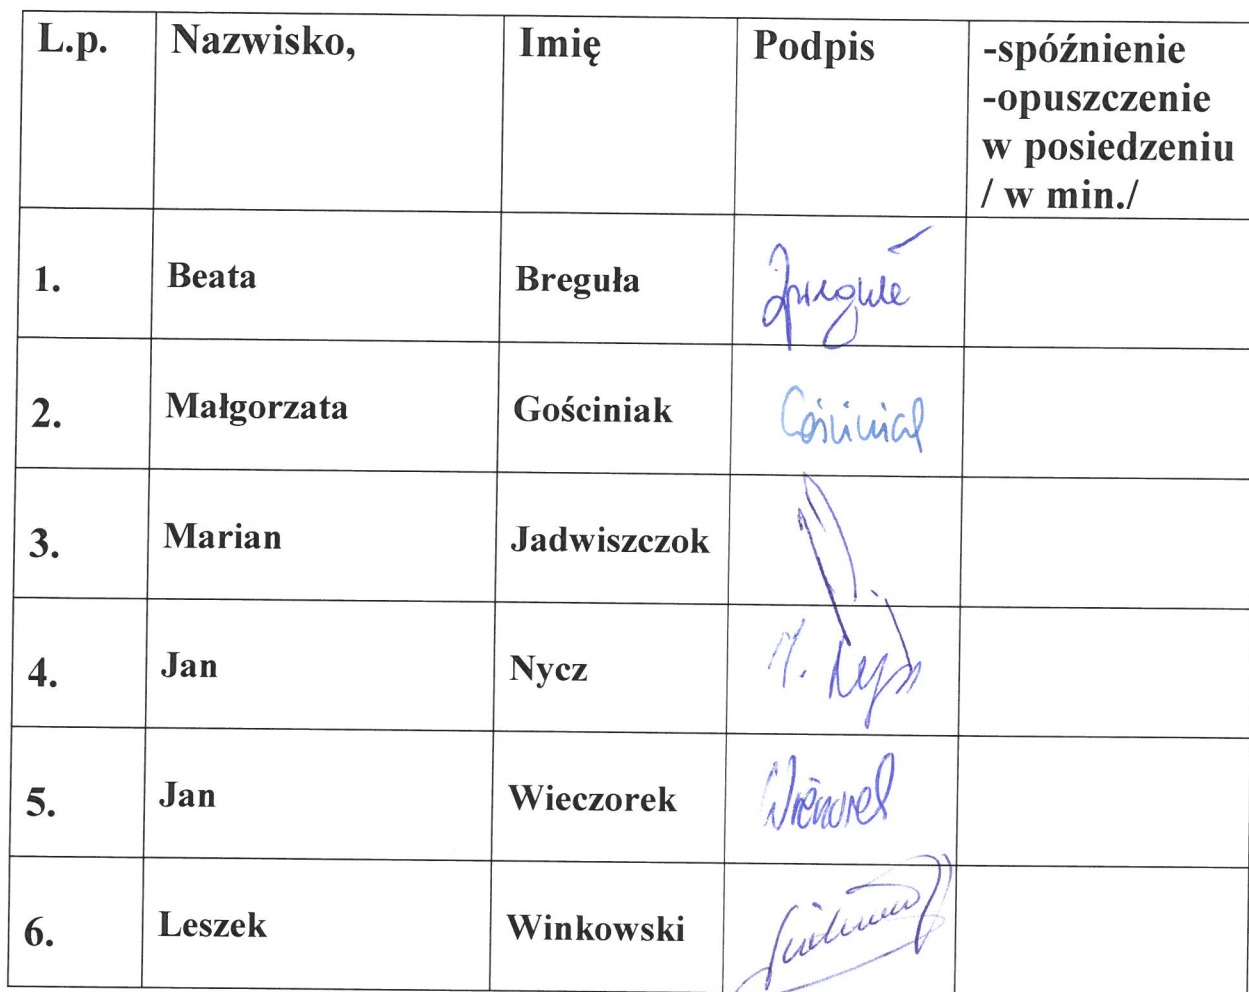 L.p. Nazwisko, Imię Podpis -spóźnienie
-opuszczenie
w posiedzeniu
/ w min./
1. Beata Breguła
2. Małgorzata Gościniak Gościniak
3. Marian Jadwiszczok
4. Jan Nycz J. Nycz
5. Jan Wieczorek Wieczorek
6. Leszek Winkowski